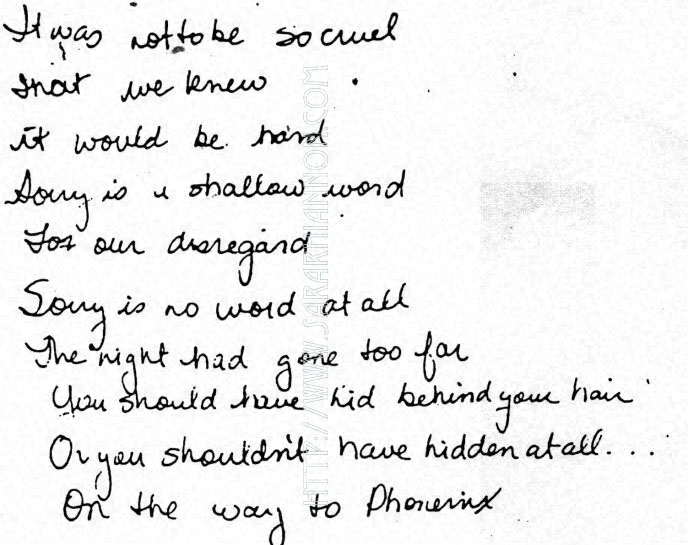 It was not to be so cruel
that we knew
it would be hard
Sorry is a shallow word
For our disregard
Sorry is no word at all
The night had gone too far
You should have hid behind your hair
Or you shouldn't have hidden at all...
On the way to Phoneinx
HTTP://WWW.SARAKMANNOX.COM